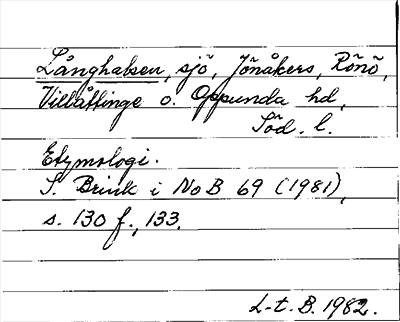 Långhalsen, sjö, Jönåkers, Rönö,
Villåttinge o. Oppunda hd,
Söd. l.
Etymologi.
S. Brink i NoB 69 (1981),
s. 130 f., 133.
L-t. B. 1982.